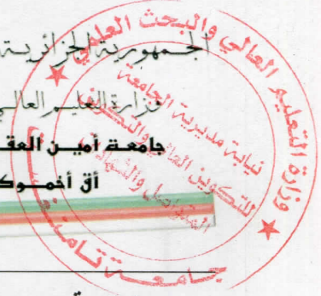 الجمهورية الجزائرية
وزارة التعليم العالي
جامعة أمين العقـ
أق أخمـوكـ
وزارة التعليم العالي والبحث العلمي
نيابة مديرية الجامعة
للتكوين العالي والتكوين
المتواصل والشهادات
جامعة تامنغست